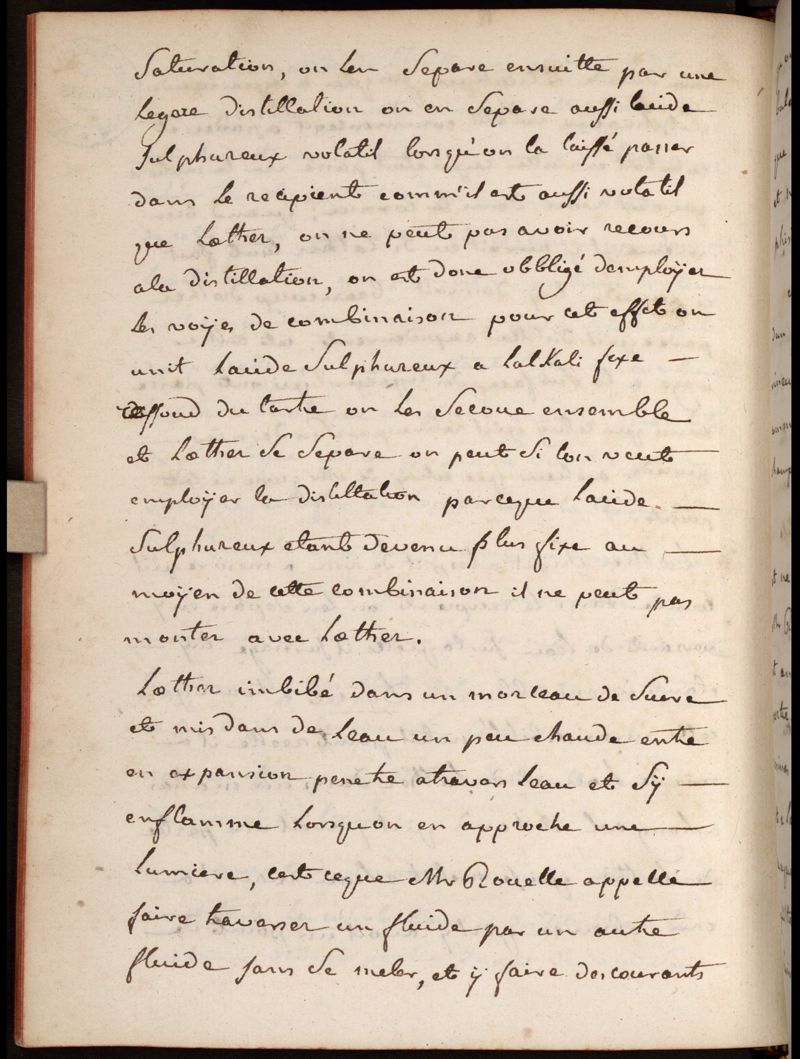 Saturation, on len Separe ensuitte par une
legere distillation on en Separe aussi lacide
Sulphureux volatil lorsqu'on la laissé passer
dans le recipient comm'il est aussi volatil
que Læther, on ne peut pas avoir recours
ala distillation, on est donc obbligé demploÿer
les voÿes de combinaison pour cet effet on
unit Lacide Sulphureux a LalKali fixe —
deffond du tartre on les Secoue ensemble
et Læther Se Separe on peut Si lon veut
emploÿer la distillation parceque Lacide —
Sulphureux etant devenu plus fixe au —
moÿen de cette combinaison il ne peut pas
monter avec Læther.
Læther imbibé dans un morceau de Sucre
et mis dans de Leau un peu chaude entre
en expansion penetre atravers Leau et Sÿ —
enflamme Lorsquon en approche une —
Lumiere, cest ceque Mr Rouelle appelle
faire traverser un fluide par un autre
fluide sans Se meler, et ÿ faire des courants